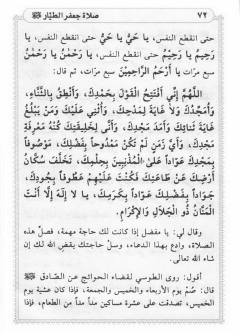 ٧٢
صلاة جعفر الطيّار
حتى انقطع النفس، يا حَيُّ يا حَيُّ حتى انقطع النفس، يا
رَحيمُ يا رَحيمُ حتى انقطع النفس، يا رَحْمٰنُ يا رَحْمٰنُ
سبع مرّات، يا أَرْحَمَ الرَّاحِمينَ سبع مرّات، ثم قال:
اللّهُمَّ إِنّي أَفْتَتِحُ القَوْلَ بِحَمْدِكَ، وَأَنْطِقُ بِالثَّناءِ،
وَأُمَجِّدُكَ وَلا غايَةَ لِمَدْحِكَ، وَأُثْني عَلَيْكَ وَمَنْ يَبْلُغُ
غايَةَ ثَنائِكَ وَأَمَدَ مَجْدِكَ، وَأَنّى لِخَليقَتِكَ كُنْهُ مَعْرِفَةِ
مَجْدِكَ، وَأَيُّ زَمَنٍ لَمْ تَكُنْ مَمْدوحاً بِفَضْلِكَ، مَوْصوفاً
بِمَجْدِكَ عَوّاداً عَلَى المُذْنِبينَ بِحِلْمِكَ، تَخَلَّفَ سُكّانُ
أَرْضِكَ عَنْ طاعَتِكَ فَكُنْتَ عَلَيْهِمْ عَطوفاً بِجودِكَ،
جَواداً بِفَضْلِكَ عَوّاداً بِكَرَمِكَ، يا لا إِلَهَ إِلّا أَنْتَ
المَنّانُ ذو الجَلالِ وَالإِكْرامِ.
وقال لي: يا مفضل إذا كانت لك حاجة مهمة، فصلّ هذه
الصلاة، وادع بهذا الدعاء، وسل حاجتك يقض الله لك إن
شاء الله تعالى.
أقول: روى الطوسي لقضاء الحوائج عن الصّادق
قال: صُمْ يوم الأربعاء والخميس والجمعة، فإذا كان عشية يوم
الخميس، تصدقت على عشرة مساكين مداً مداً من الطعام، فإذا